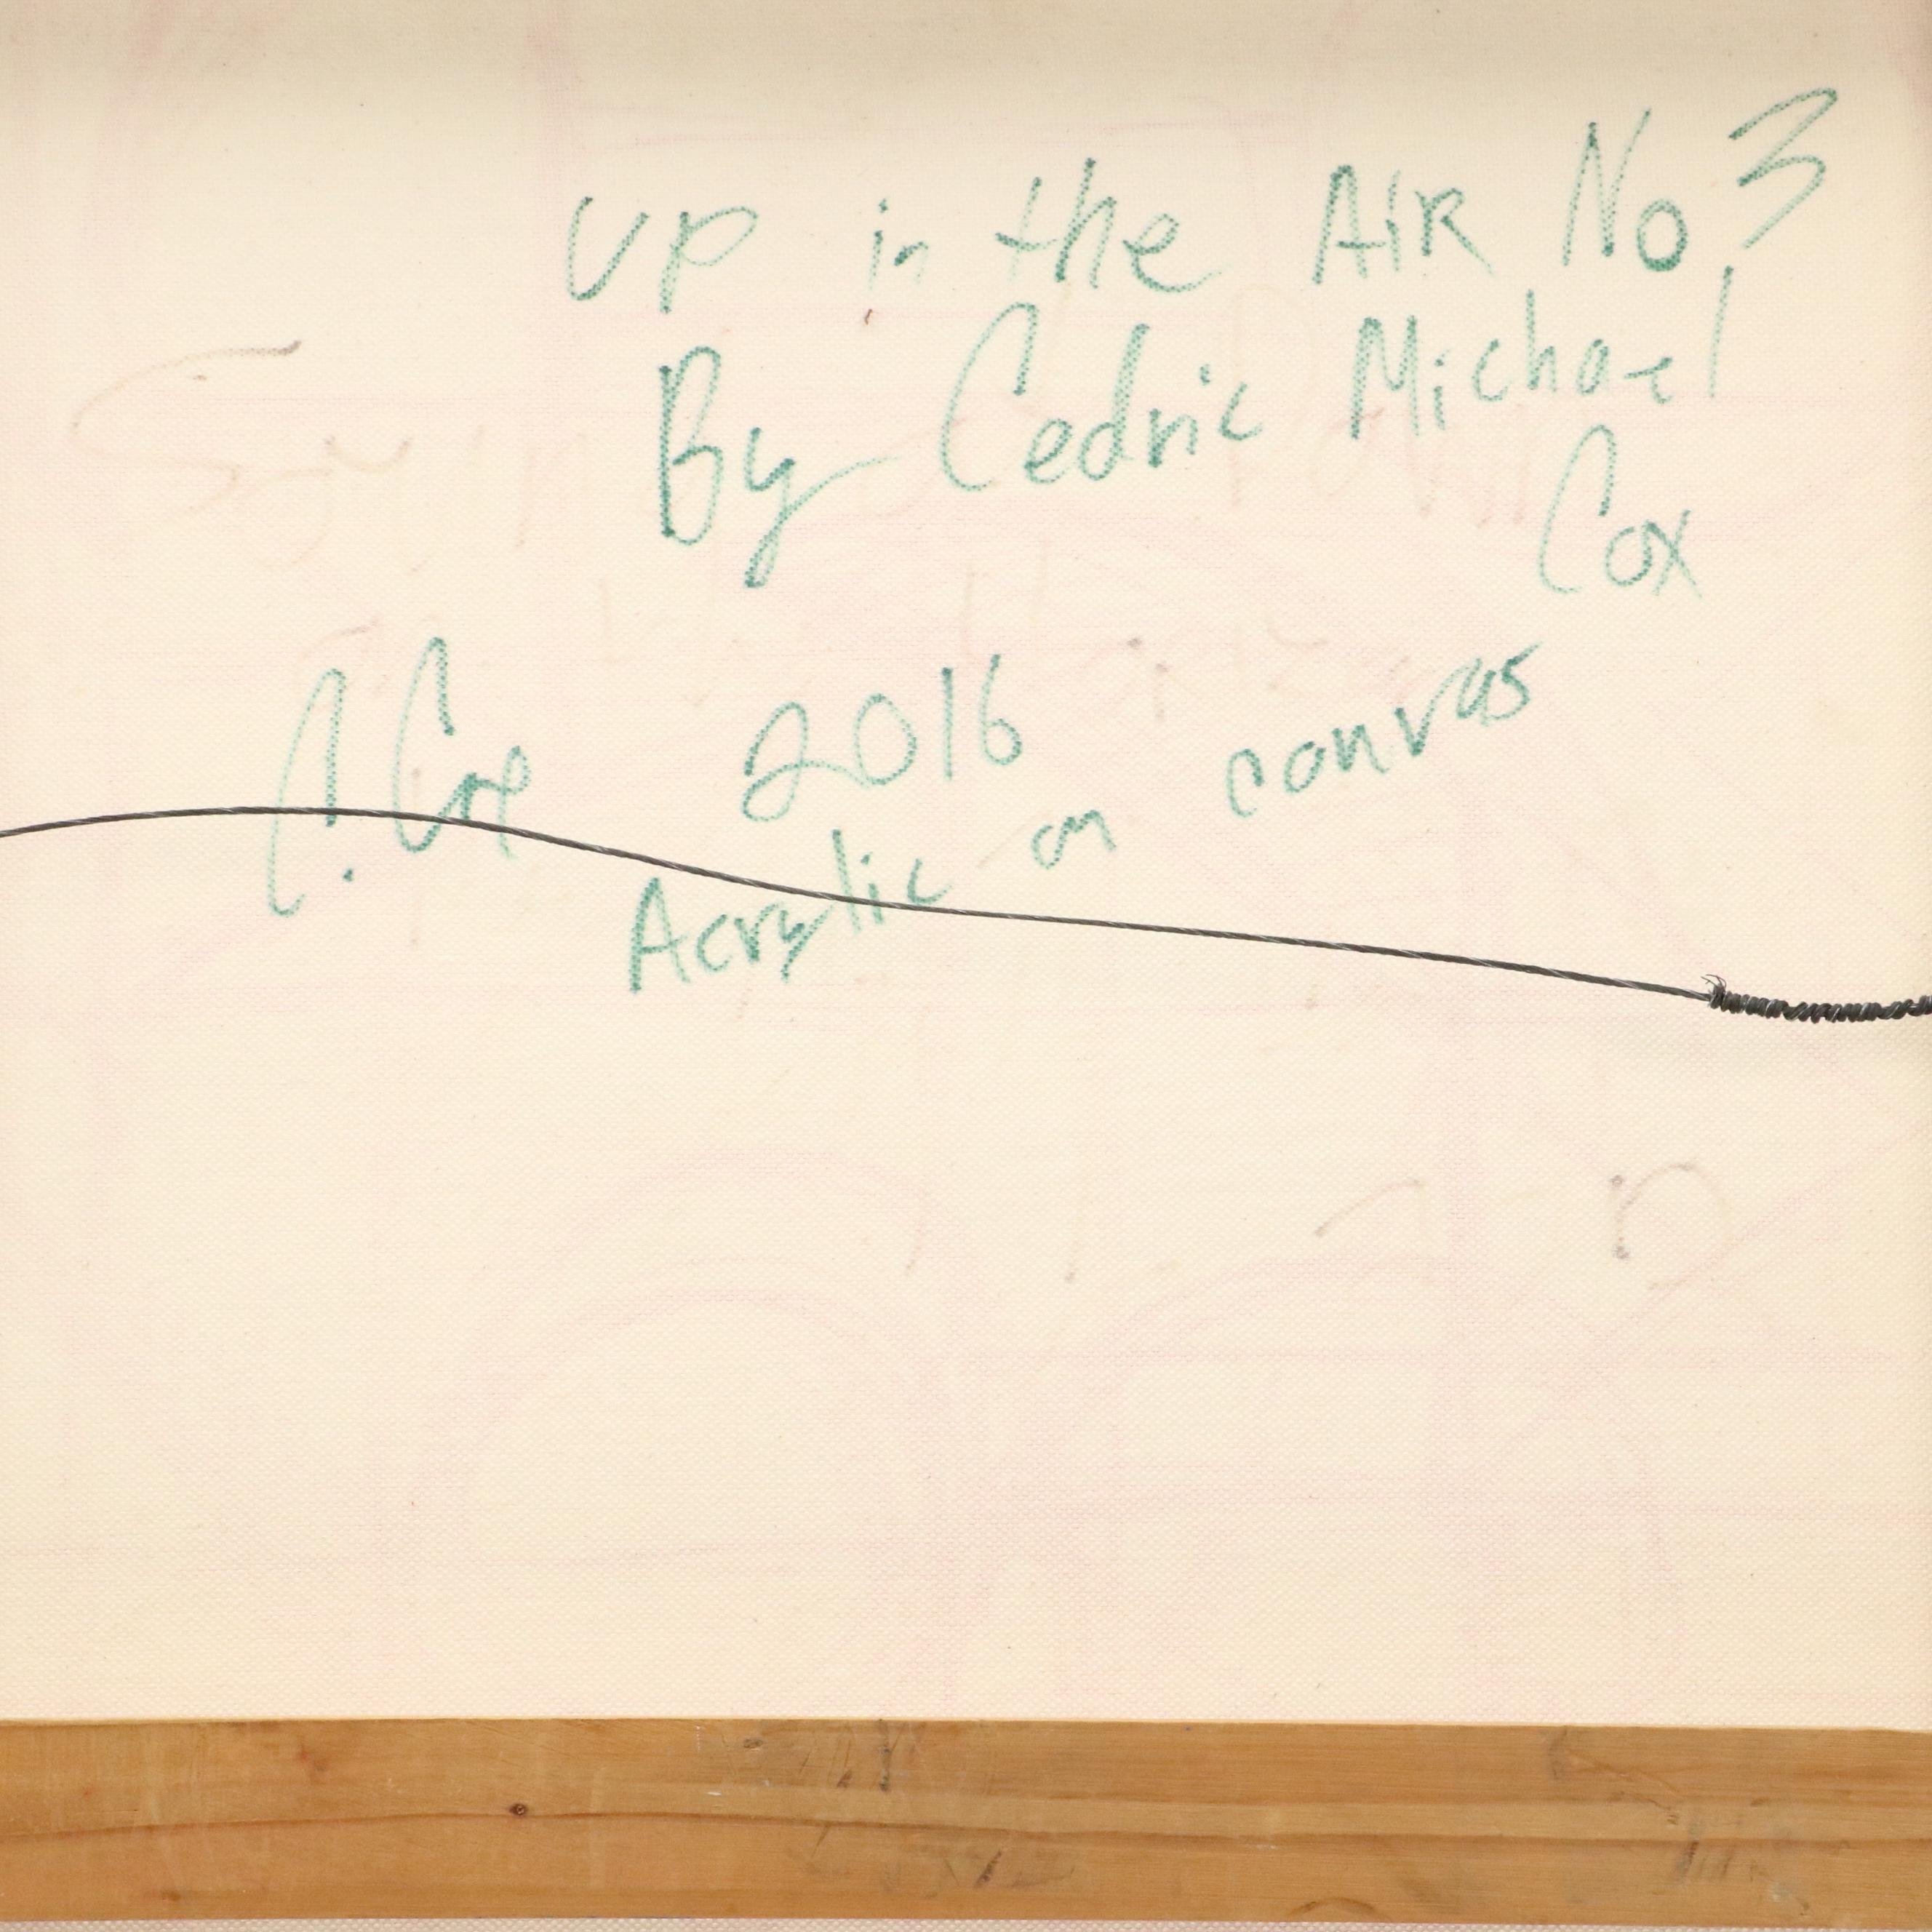 Up in the AiR No, 3
By Cedric Michael
Cox
C. Cox 2016
Acrylic on canvas